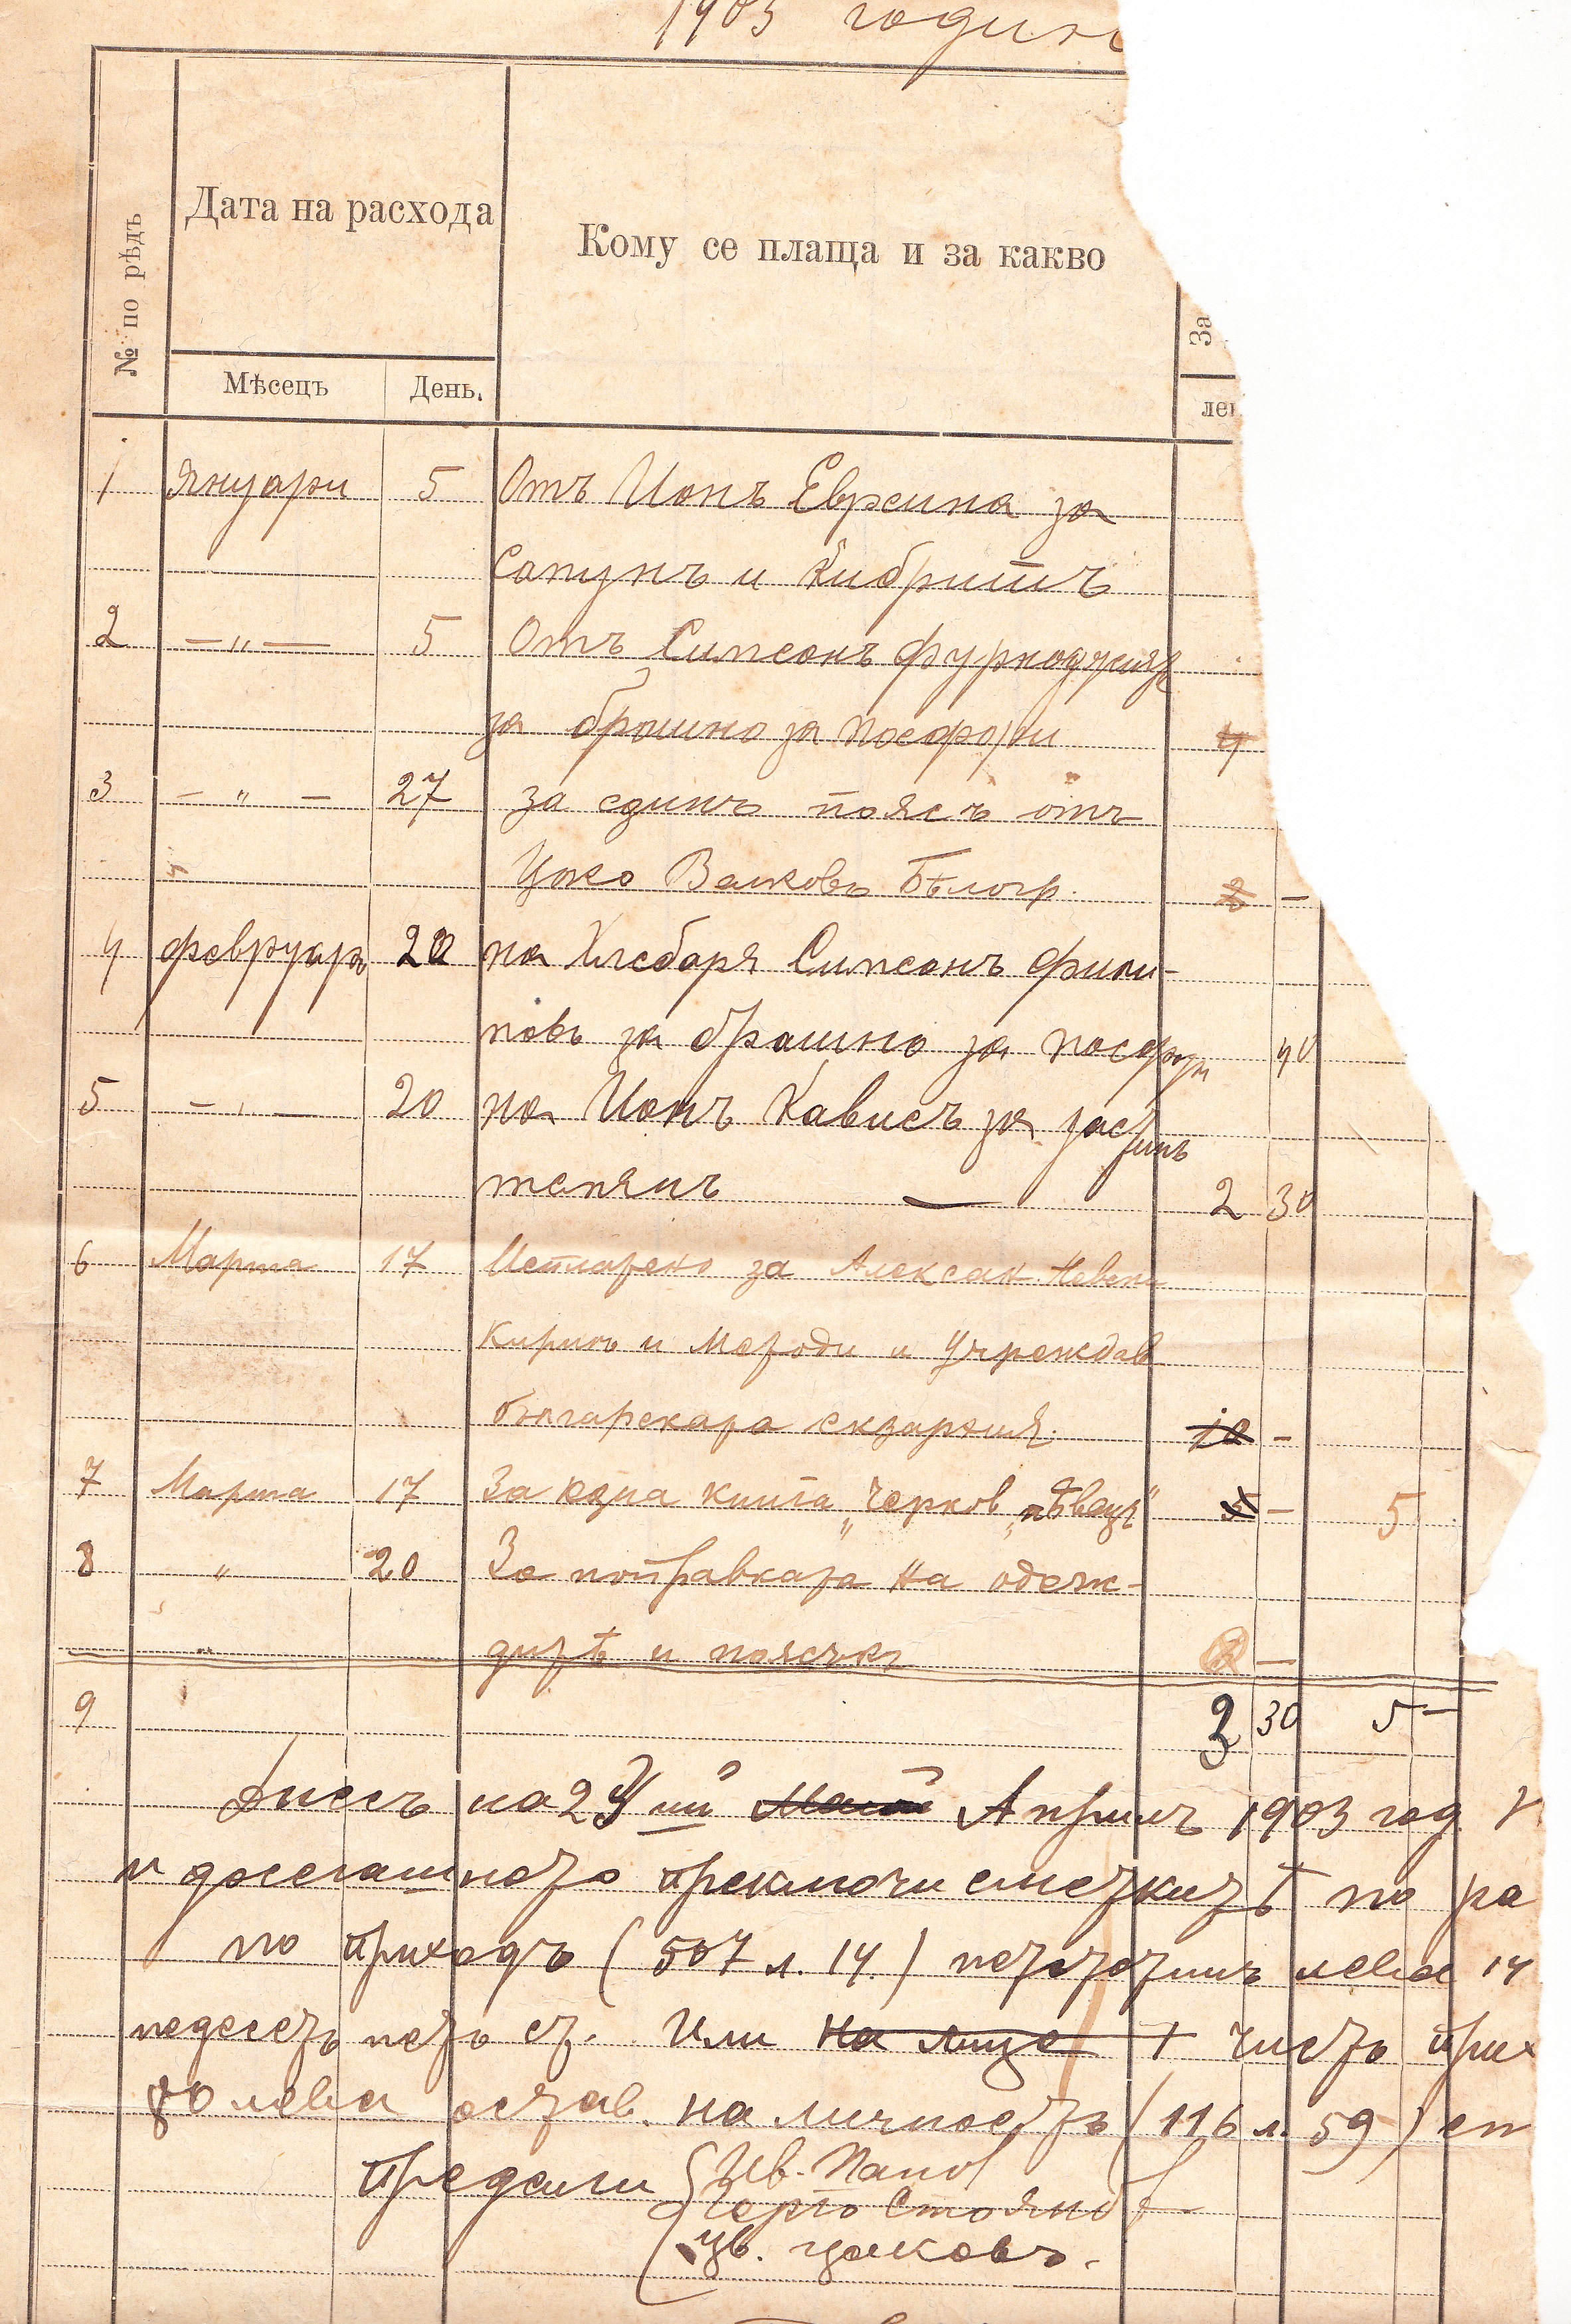 1903 годин
№ по рѣдъ
Дата на расхода
Кому се плаща и за какво
За
Мѣсецъ
День.
лев
1 Януари 5 Отъ Ионъ Евреина за
Сапунъ и Кибритъ
2 — „ — 5 Отъ Симеонъ фурнаджия
за брашно за посфори 4
3 — „ — 27 За единъ поясъ отъ
Цоко Вълковъ Бѣлогр. 2 —
4 февруаръ 20 на Хлебаря Симеонъ Фили-
повъ за брашно за посфори 40
5 — „ — 20 на Ионъ Кависъ за
— 2 30
6 Марта 17 Исплатено за Алексан Невски
Кирилъ и Методи и Учреждав
българската екзархия. 10 —
7 Марта 17 За една книга „Церков „пѣвецъ“ 5 — 5
8 „ 20 За поправката на одеж-
дитѣ и поясъкъ —
9 3 30 5 —
Днесъ на 24 ий Май Априлъ 1903 год.
и досегашното приключи сметкитѣ по ра
по приходъ (507 л. 14.) петстотинъ лева 14
педесетъ петь ст. Или на лице + чистъ прих
80 лева остав. на личность (116 л. 59) ст
Предали Ив. Папов
Герго Стоянов
Цв. Цаковъ.